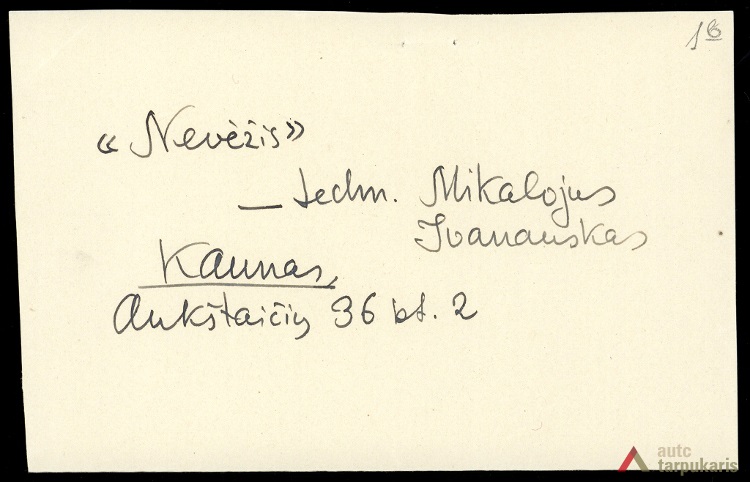 16
«Nevėžis»
— techn. Mikalojus
Ivanauskas
Kaunas,
Aukštaičių 36 bt. 2
autc
tarpukaris